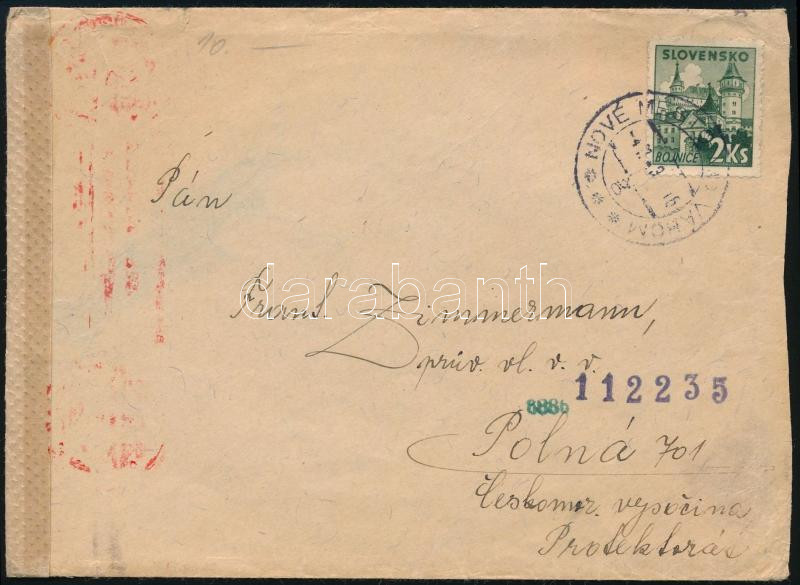 10. —
SLOVENSKO
BOJNICE 2Ks
NOVÉ
VÁHOM
Pán
Frant. Zimmermann,
prův. vl. v. v.
112235
8886
Polná 701
Českomor. vysočina
Protektorát
darabanth